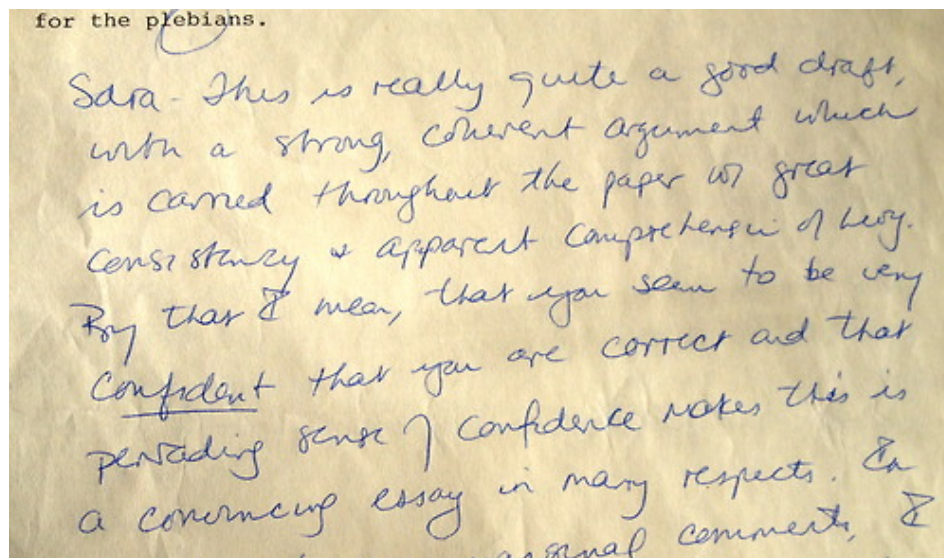 for the plebians.
Sara - This is really quite a good draft,
with a strong, coherent argument which
is carried throughout the paper w/ great
consistency & apparent comprehension of Livy.
By that I mean, that you seem to be very
confident that you are correct and that
pervading sense of confidence makes this is
a convincing essay in many respects. In
marginal comments, I